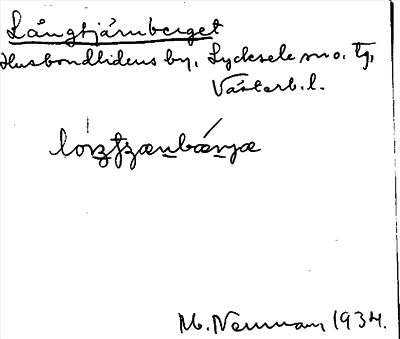 Långtjärnberget
Husbondlidens by, Lycksele sn o. tg,
Västerb. l.
M. Nenman, 1934.